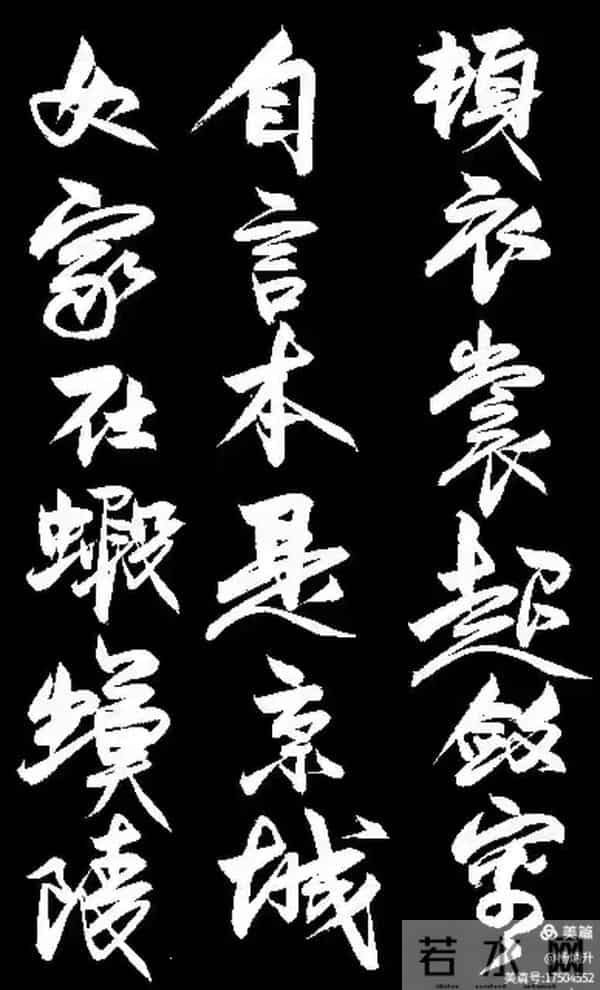 頓衣裳起斂容
自言本是京城
女家在蝦蟆陵
美篇
美篇号:17504552
若水网